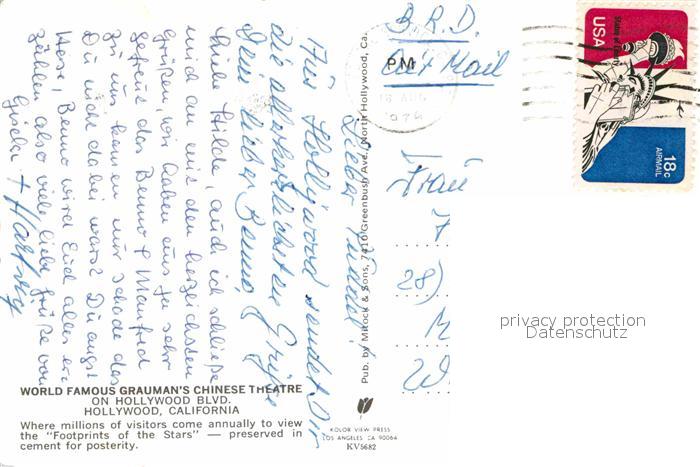 B.R.D.
Air Mail
PM
AUG
USA
18c
AIRMAIL
Lieber Manni!
Aus Hollywood sendet Dir
die allerherzlichsten Grüße
Dein lieber Benno,
Liebe Hilde, auch ich schließe
mich an mit den herzlichsten
Grüßen, wir haben uns ja sehr
gefreut das Benno + Manfred
zu uns kamen nur schade das
Du nicht dabei warst Du angst
Hase, Benno wird Euch alles er-
zählen also viele liebe Grüße von
Gisela + Hartwig
Frau
28)
M
W
Pub. by Mitock & Sons, 7410 Greenbush Ave., North Hollywood, Ca.
WORLD FAMOUS GRAUMAN'S CHINESE THEATRE
ON HOLLYWOOD BLVD.
HOLLYWOOD, CALIFORNIA
Where millions of visitors come annually to view
the "Footprints of the Stars" — preserved in
cement for posterity.
KOLOR VIEW PRESS
LOS ANGELES CA 90064
KV5682
privacy protection
Datenschutz